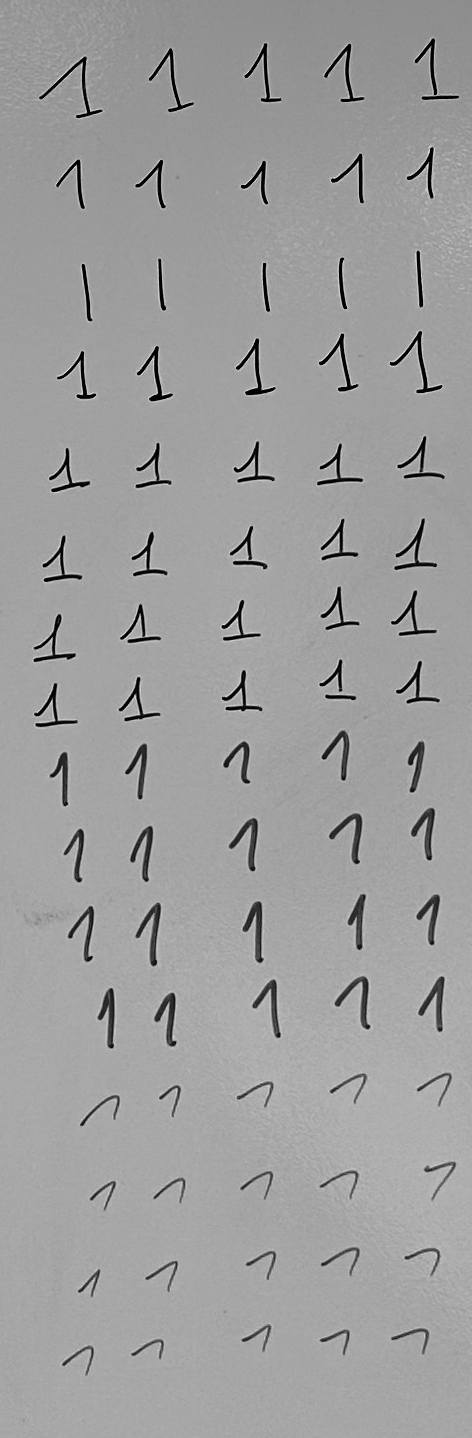 1 1 1 1 1
1 1 1 1 1
1 1 1 1 1
1 1 1 1 1
1 1 1 1 1
1 1 1 1 1
1 1 1 1 1
1 1 1 1 1
1 1 1 1 1
1 1 1 1 1
1 1 1 1 1
1 1 1 1 1
1 1 1 1 1
1 1 1 1 1
1 1 1 1 1
1 1 1 1 1